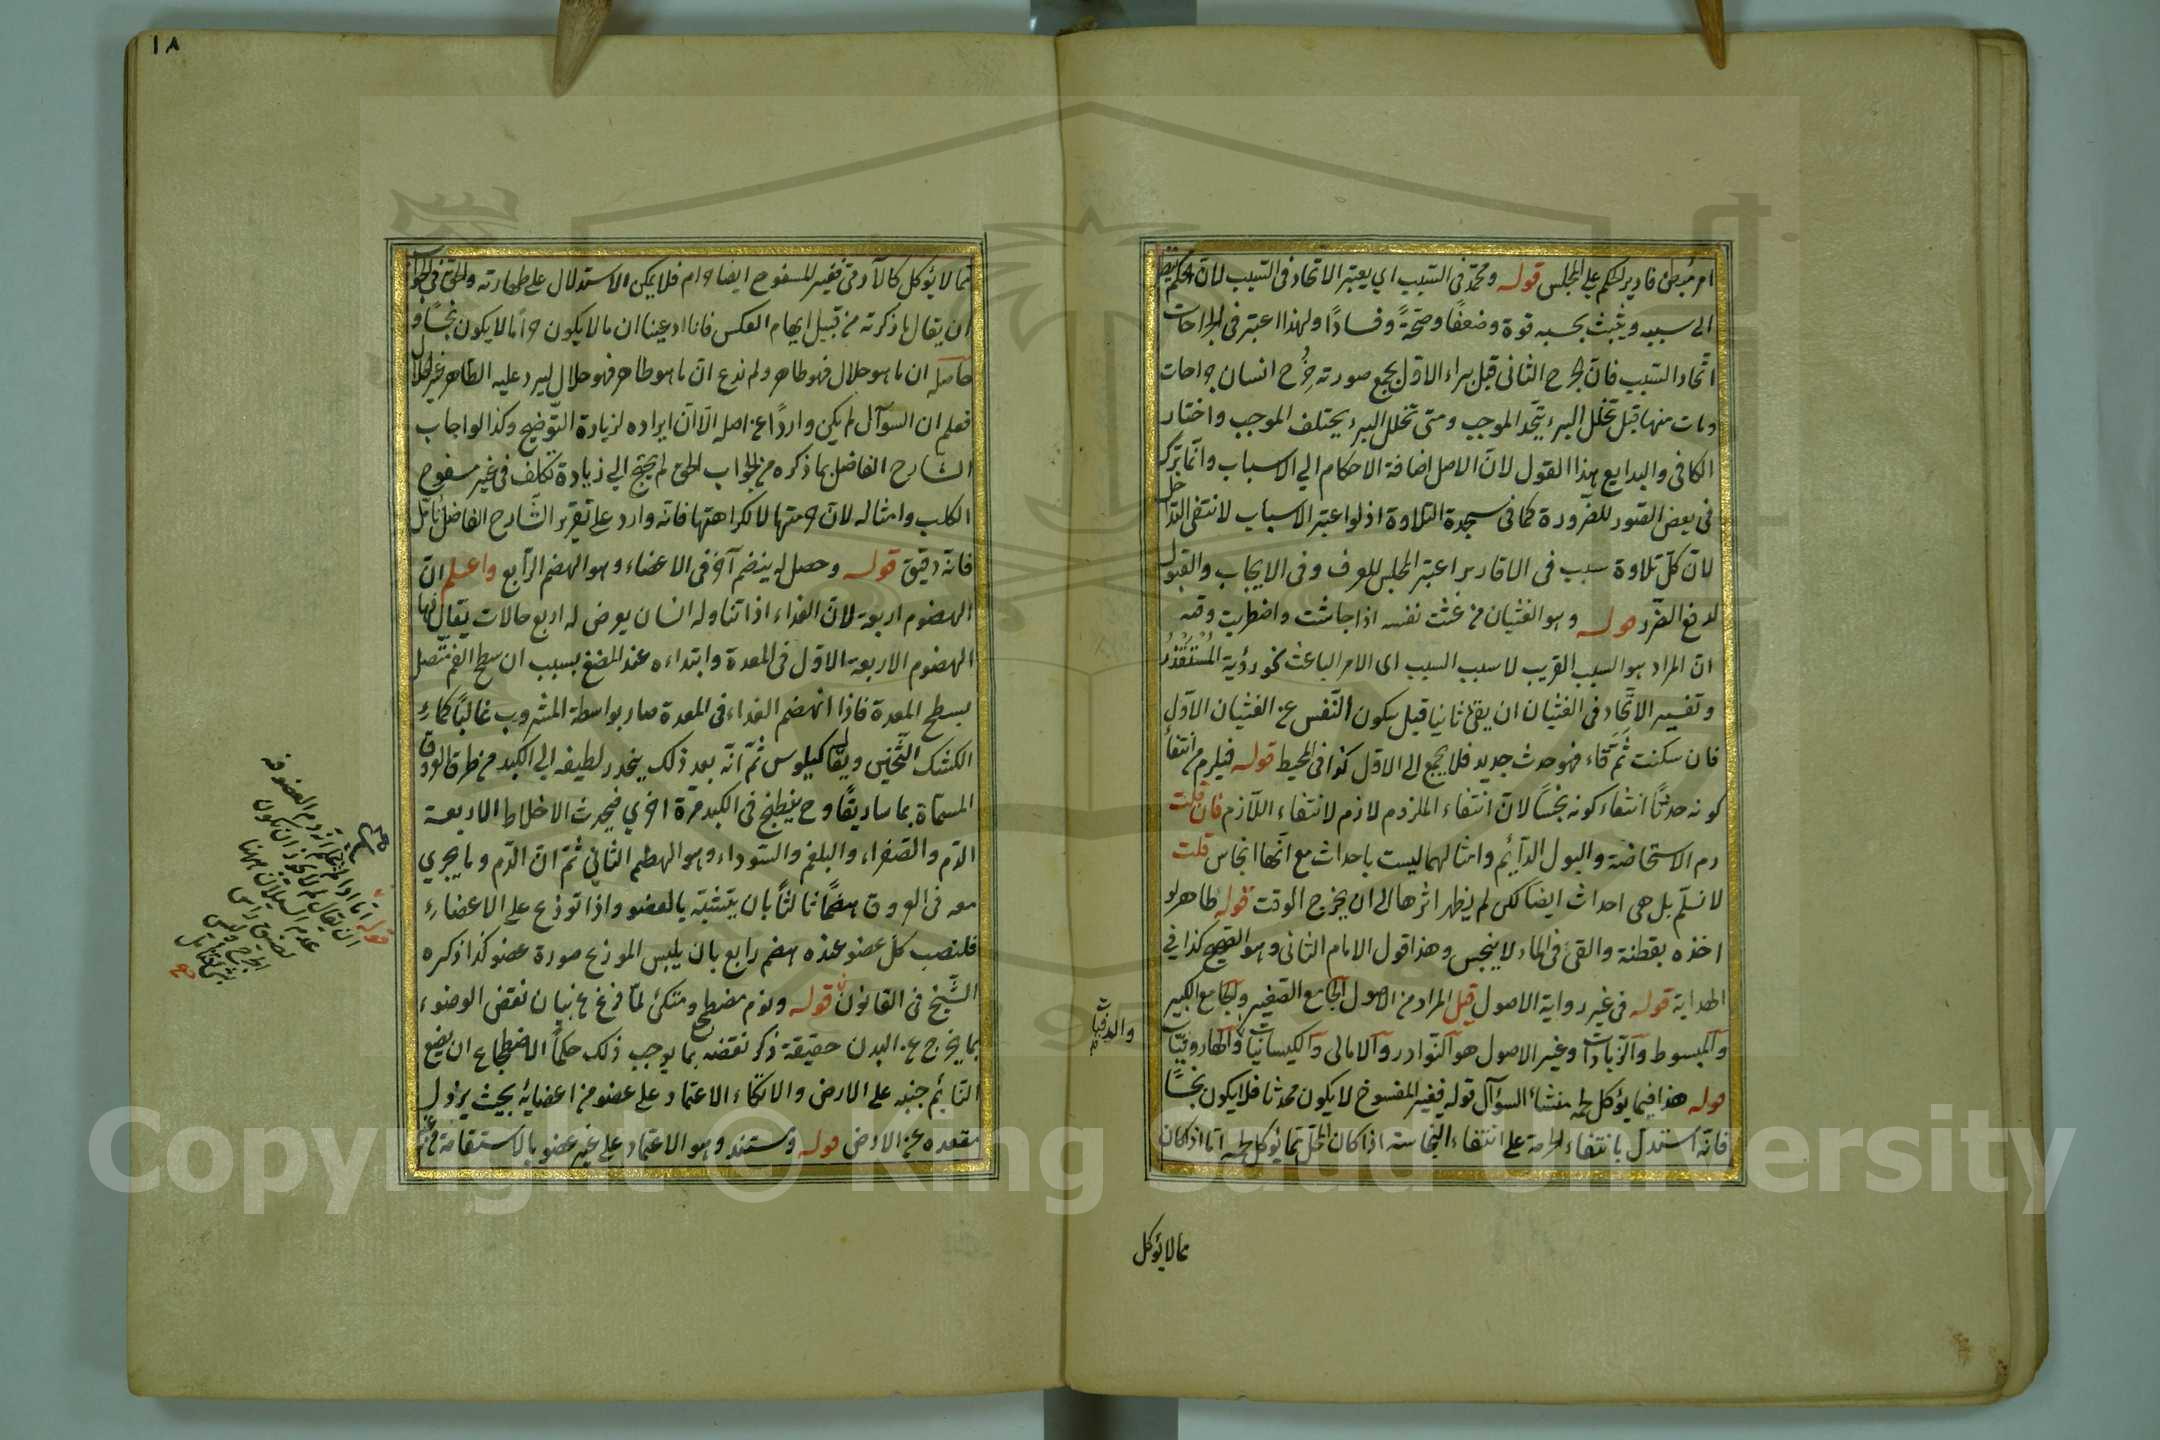 امر مبطن فادير الحكم على المجلس قوله ومحمد في السبب اي يعتبر الاتحاد في السبب لان الحكم يضاف
الى سببه ويثبت بحسبه قوة وضعفًا وصحةً وفسادًا ولهذا اعتبر في الجراحات
اتحاد السبب فان الجرح الثاني قبل براء الاول يجمع صورته جُرح انسان جراحات
ومات منها قبل تخلل البرء يتحد الموجب ومتى تخلل البرء يختلف الموجب واختار
الكافي والبدايع هذا القول لان الاصل اضافة الاحكام الى الاسباب وانما ترك
في بعض الصور للضرورة كما في سجدة التلاوة اذ لو اعتبر الاسباب لانتفى التداخل
لان كل تلاوة سبب في الاقارير اعتبر المجلس للعرف وفي الايجاب والقبول
لدفع الضرر قوله وهو الغثيان من غثت نفسه اذا جاشت واضطربت وفيه
ان المراد هو السبب القريب لا سبب السبب اى الامر الباعث كنحو رؤية المُسْتَقْذَرُ
وتفسير الاتّحاد في الغثيان ان يقئ ثانيا قبل سكون النّفس عن الغثيان الاوّل
فان سكنت ثمّ قاء فهو حدث جديد فلا يجمع الى الاول كذا في المحيط قوله فيلزم من انتفاء
كونه حدثًا انتفاء كونه نجسًا لان انتفاء الملزوم لازم لانتفاء اللّازم فان قلت
دم الاستحاضة والبول الدّائم وامثالهما ليست باحداث مع انّها انجاس قلت
لا نسلّم بل هى احداث ايضا لكن لم يظهر اثرها الى ان يخرج الوقت قوله طاهر لو
اخذه بقطنة والقئ في الماء لا ينجس وهذا قول الامام الثاني وهو الصحيح كذا في
الهداية قوله في غير رواية الاصول قيل المراد من الاصول الجامع الصغير والجامع الكبير
والمبسوط والزيادات وغير الاصول هو النّوادر والامالى والكيسانيات والهارونيّات
والرقيات
قوله هذا فيما يؤكل لحمه منشاء السؤال قوله فغير المسفوح لا يكون محدثا فلا يكون نجسًا
فانّه استدل بانتفاء الحرمة على انتفاء النجاسة اذا كان المحل مما يؤكل لحمه اما اذا كان
مما لا يؤكل
١٨
مما لا يؤكل كالآدمى فغير المسفوح ايضا حرام فلا يمكن الاستدلال على طهارته والحق في الجواب
ان يقال ما ذكرته من قبيل ايهام العكس فانا ادعينا ان ما لا يكون حرامًا لا يكون نجسًا و
حاصله ان ما هو حلال فهو طاهر ولم ندع ان ما هو طاهر فهو حلال ليرد عليه الطّاهر غير الحلال
فعلم ان السؤال لم يكن واردًا عن اصله الّا ان ايراده لزيادة التّوضيح وكذا لو اجاب
الشّارح الفاضل بما ذكره من الجواب الحق لم يحتج الى زيادة تكلف في غير مسفوح
الكلب وامثاله لان حرمتها لا لكراهتها فانه وارد على تقرير الشّارح الفاضل تأمّل
فانه دقيق قوله وحصل له ينضم آخر في الاعضاء وهو الهضم الرّابع واعلم ان
الهضوم اربعة لان الغذاء اذا تناوله انسان يعرض له اربع حالات يقال لها
الهضوم الاربعة الاوّل في المعدة وابتداءه عند المضغ بسبب ان سطح الفم متّصل
بسطح المعدة فاذا انهضم الغداء في المعدة صار بواسطة المشروب غالبًا كماء
الكشك الثّخين ويقال له كيلوس ثمّ انّه بعد ذلك ينحدر لطيفه الى الكبد من طرق العروق
المسمّاة بماساريقًا وح ينطبخ في الكبد مرّة اخرى فيحدث الاخلاط الاربعة
الدّم والصّفراء والبلغم والسّوداء وهو الهضم الثاني ثمّ انّ الدّم وما يجري
معه في العروق هضمًا ثالثًا بان يتشبّه بالعضو واذا توزع على الاعضاء
فلنصب كلّ عضو عنده هضم رابع بان يلبس الموزع صورة عضو كذا ذكره
الشّيخ في القانون قوله ونوم مضطجع ومتكئ لمّا فرغ عن بيان نقض الوضوء
بما يخرج عن البدن حقيقة ذكر نقضه بما يوجب ذلك حكمًا الاضطجاع ان يضع
النّائم جنبه على الارض والاتّكاء الاعتماد على عضو من اعضائه بحيث يزول
مقعده عن الارض قوله ومستند وهو الاعتماد على غير عضو بالاستقامة